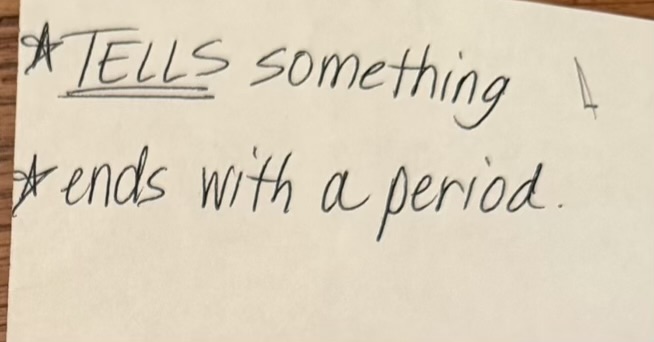 ☆ TELLS something
☆ ends with a period.